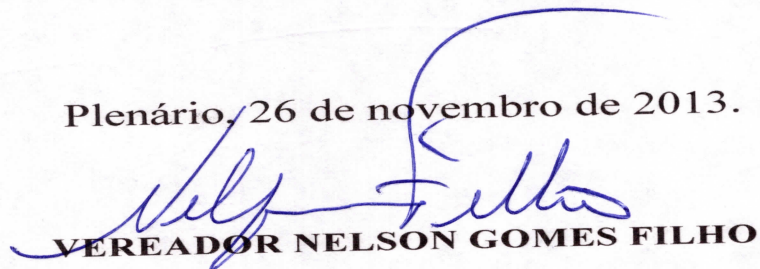 Plenário, 26 de novembro de 2013.
VEREADOR NELSON GOMES FILHO